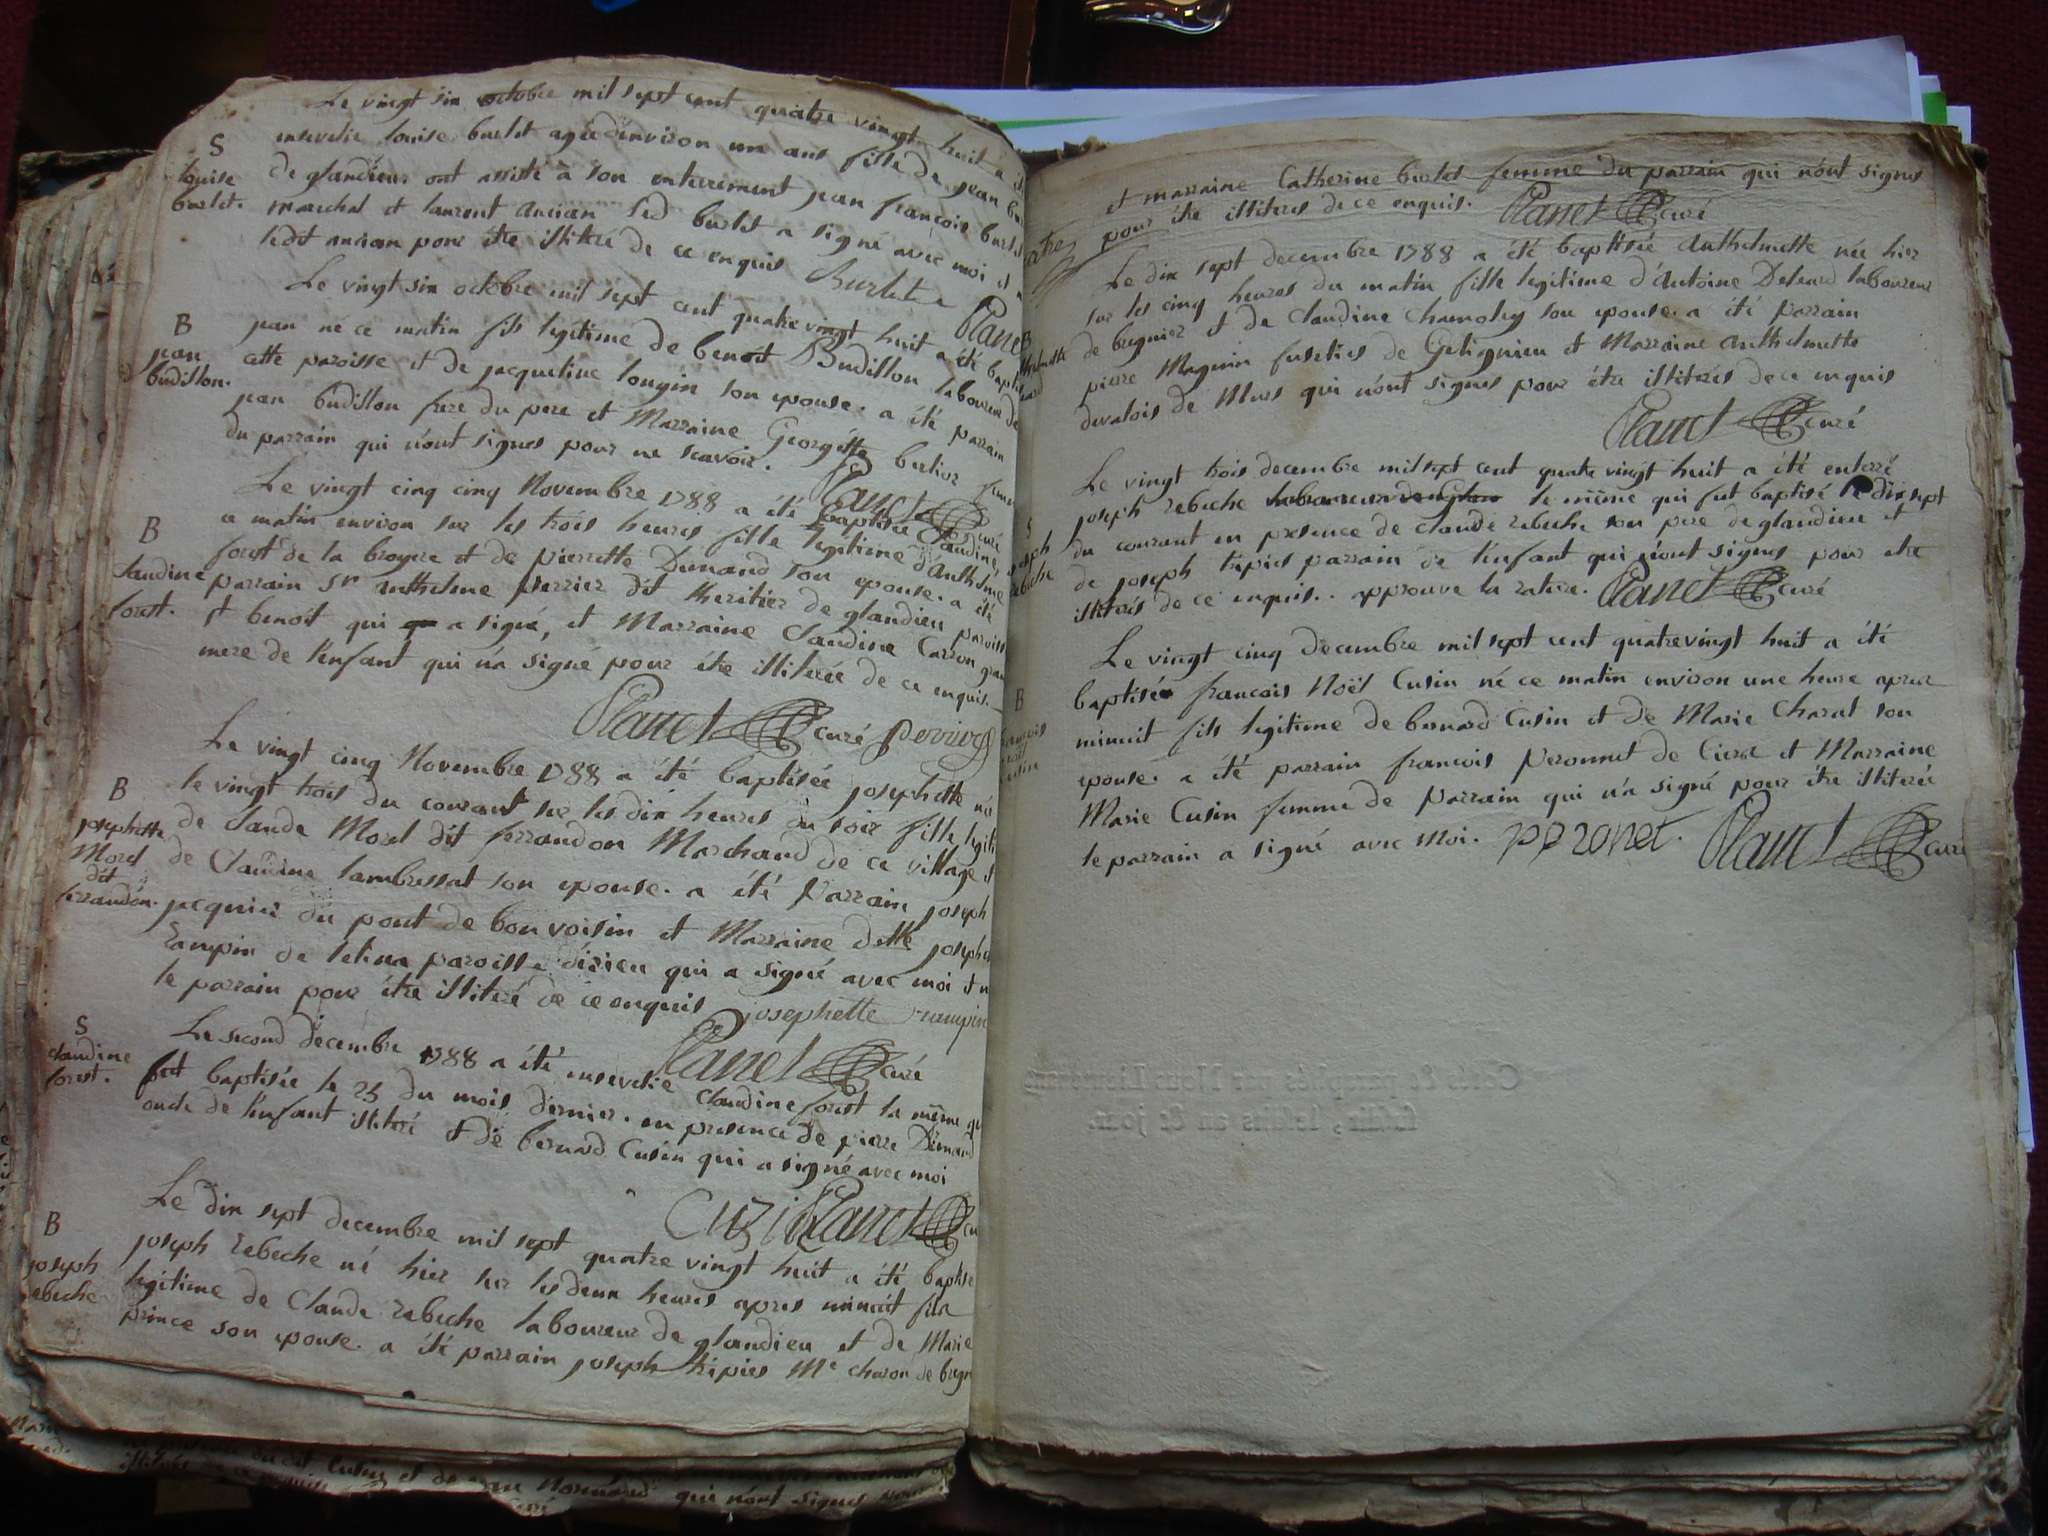 Le vingt six octobre mil sept cent quatre vingt huit a été
S
louise
burlet.
ensevelie louise burlet agée d'environ un ans fille de jean
de glandieu ont assisté à son enterrement jean francois burlet
marechal et laurent ancian led burlet a signé avec moi et
ledit ancian pour étre illiteré de ce enquis Burlet Planet
Le vingt six octobre mil sept cent quatre vingt huit a été
B
jean
budillon.
jean né ce matin fils legitime de benoit Budillon laboureur de
cette paroisse et de jacqueline longin son epouse. a été parrain
jean budillon frere du pere et Marraine Georgette berlior
du parrain qui n'ont signes pour ne scavoir. Planet curé
Le vingt cinq cinq Novembre 1788 a été baptisée Claudine,
B
Claudine
forest.
ce matin environ sur les trois heures fille legitime d'anthelme
forest de la broyere et de pierrette Dumand son epouse. a été
parrain Sr anthelme perrier dit theritier de glandieu paroisse
st benoit qui a signé, et Marraine Claudine Carron
mere de l'enfant qui n'a signé pour étre illiterée de ce enquis.
Planet curé perrier
Le vingt cinq Novembre 1788 a été baptisée josephette née
B
josephette
Morel
dit
ferrandon.
le vingt trois du courant sur les dix heures du soir fille
de Claude Morel dit ferrandon Marchand de ce village et
de Claudine lambressat son epouse. a été Parrain joseph
jacquier du pont de bon voisin et Marraine dlle
rampin de paroisse d'izieu qui a signé avec moi et
le parrain pour étre illiteré de ce enquis josephette rampin
Planet curé
Le second decembre 1788 a été ensevelie Claudine forest la méme
S
claudine
forest.
fut baptisée le 25 du mois dernier. en presence de pierre Dumand
oncle de l'enfant illiteré et de bernard Cusin qui a signé avec moi
Cuzin Planet
Le dix sept decembre mil sept quatre vingt huit a été
B
joseph
rebeche
joseph rebeche né hier sur les deux heures apres minuit fils
legitime de Claude rebeche laboureur de glandieu et de Marie
prince son epouse. a été parrain joseph tripier Me charon de
et marraine Catherine burlet femme du parrain qui n'ont signes
pour étre illiteres de ce enquis. Planet curé
Le dix sept decembre 1788 a été baptisée Anthelmette née hier
B
sur les cinq heures du matin fille legitime d'Antoine laboureur
de bregnier et de Claudine son epouse. a été parrain
pierre Magnin fustier de Getignieu et Marraine Anthelmette
devalois de Murs qui n'ont signes pour étre illiterés de ce enquis
Planet curé
Le vingt trois decembre mil sept cent quatre vingt huit a été enterré
S
joseph
rebeche
joseph rebeche le méme qui fut baptisé le dix sept
du courant en presence de claude rebeche son pere de glandieu et
de joseph tripier parrain de l'enfant qui n'ont signes pour etre
illiterés de ce enquis.. approuve la rature. Planet curé
Le vingt cinq decembre mil sept cent quatrevingt huit a été
B
francois
noël
cusin
baptisé francois Noël Cusin né ce matin environ une heure apres
minuit fils legitime de bernard Cusin et de Marie Charat son
epouse. a été parrain francois Peronnet de et Marraine
Marie Cusin femme de Parrain qui n'a signé pour étre illiterée
le parrain a signé avec Moi. peronet. Planet curé